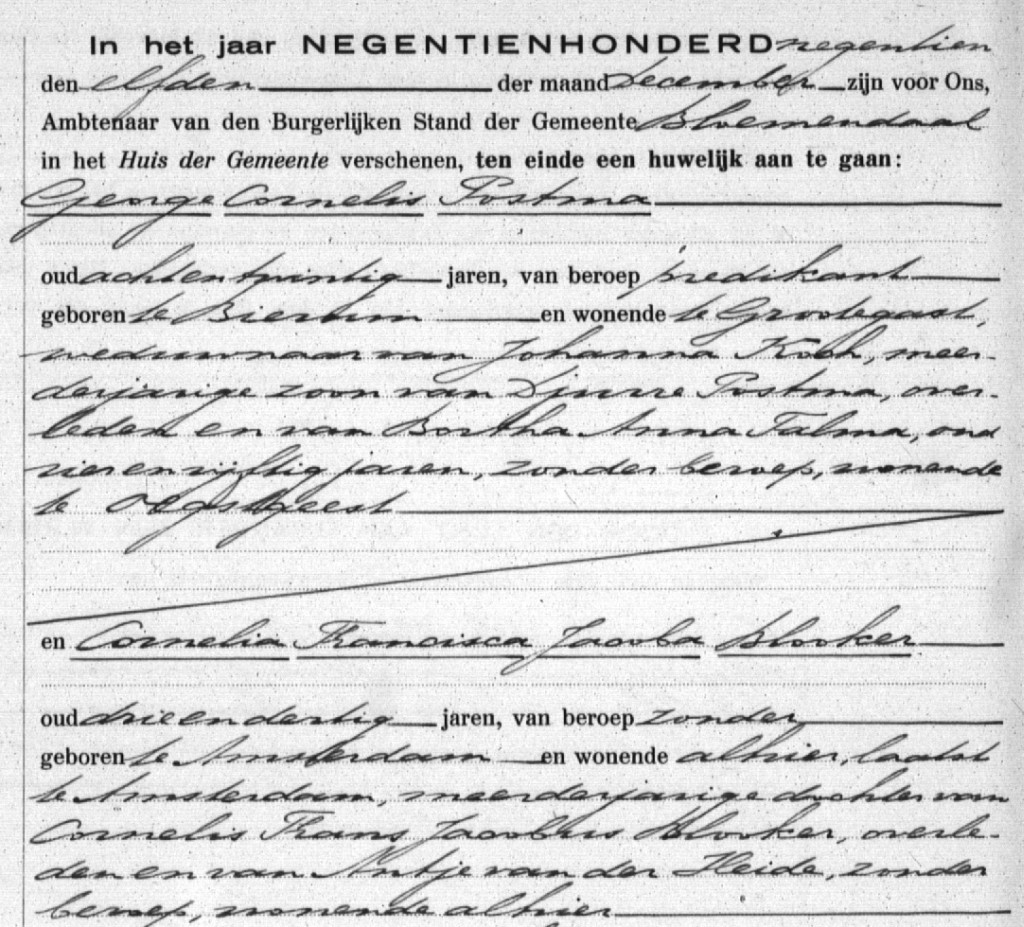 In het jaar NEGENTIENHONDERD negentien
den elfden der maand December zijn voor Ons,
Ambtenaar van den Burgerlijken Stand der Gemeente Bloemendaal
in het Huis der Gemeente verschenen, ten einde een huwelijk aan te gaan:
George Cornelis Postma
oud achtentwintig jaren, van beroep predikant
geboren te Bierum en wonende te Grootegast,
weduwnaar van Johanna Koch, meer-
derjarige zoon van Djurre Postma, over-
leden en van Bertha Anna Talma, oud
vier en vijftig jaren, zonder beroep, wonende
te Oegstgeest
en Cornelia Francisca Jacoba Blooker
oud drie en dertig jaren, van beroep zonder,
geboren te Amsterdam en wonende alhier, laatst
te Amsterdam, meerderjarige dochter van
Cornelis Frans Jacobus Blooker, overle-
den en van Antje van der Heide, zonder
beroep, wonende alhier